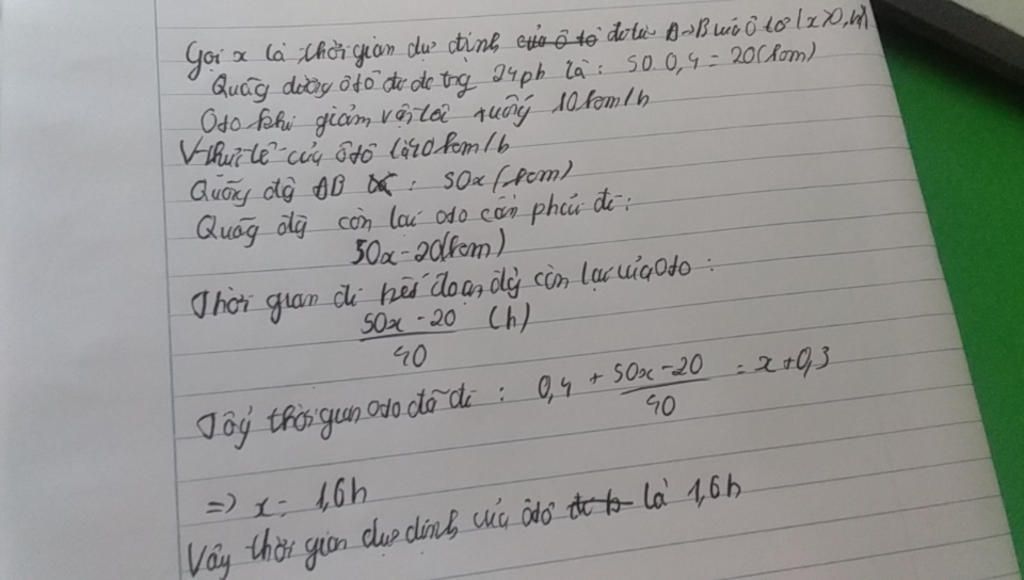 Gọi x là thời gian dự định của ô tô đi từ A→B của ô tô (x>0, h)
Quãng đường ôtô đi đc trg 24ph là: 50.0,4 = 20(km)
Oto khi giảm vận tốc xuống 10km/h
V thực tế của ôtô là 40km/h
Quãng đg AB : 50x(km)
Quãg đg còn lại oto cần phải đi:
50x-20(km)
Thời gian đi hết đoạn đg còn lại của oto:
50x-20 (h)
40
Tổng thời gian oto đã đi : 0,4 + 50x-20 = x+0,3
40
=> x= 1,6h
Vậy thời gian dự định của ôtô là 1,6h